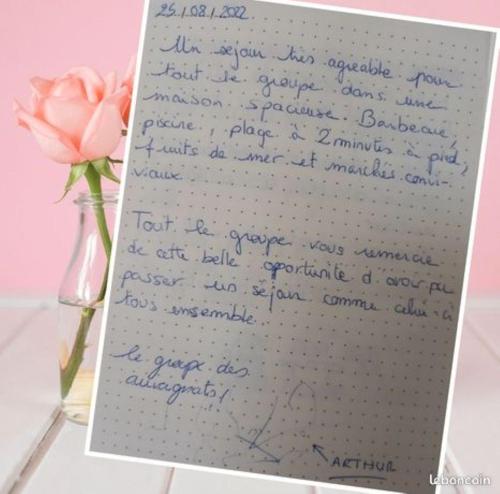 25/08/2022
Un sejour très agreable pour
tout le groupe dans une
maison spacieuse. Barbecue,
piscine, plage à 2 minutes à pied,
fruits de mer et marchés convi-
viaux.
Tout le groupe vous remercie
de cette belle oportunite d'avoir pu
passer un sejour comme celui-ci
tous ensemble.
le groupe des
auvragnats!
ARTHUR
leboncoin